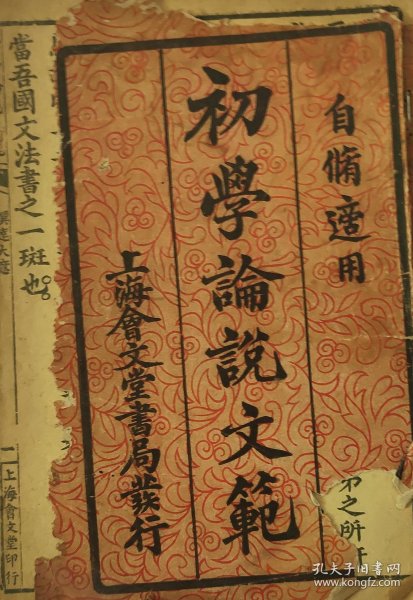 自脩適用
初學論說文範
上海會文堂書局發行
弟之所
當吾國文法書之一斑也
撰述大意
一
上海會文堂印行
孔夫子旧书网
www.kongfz.com